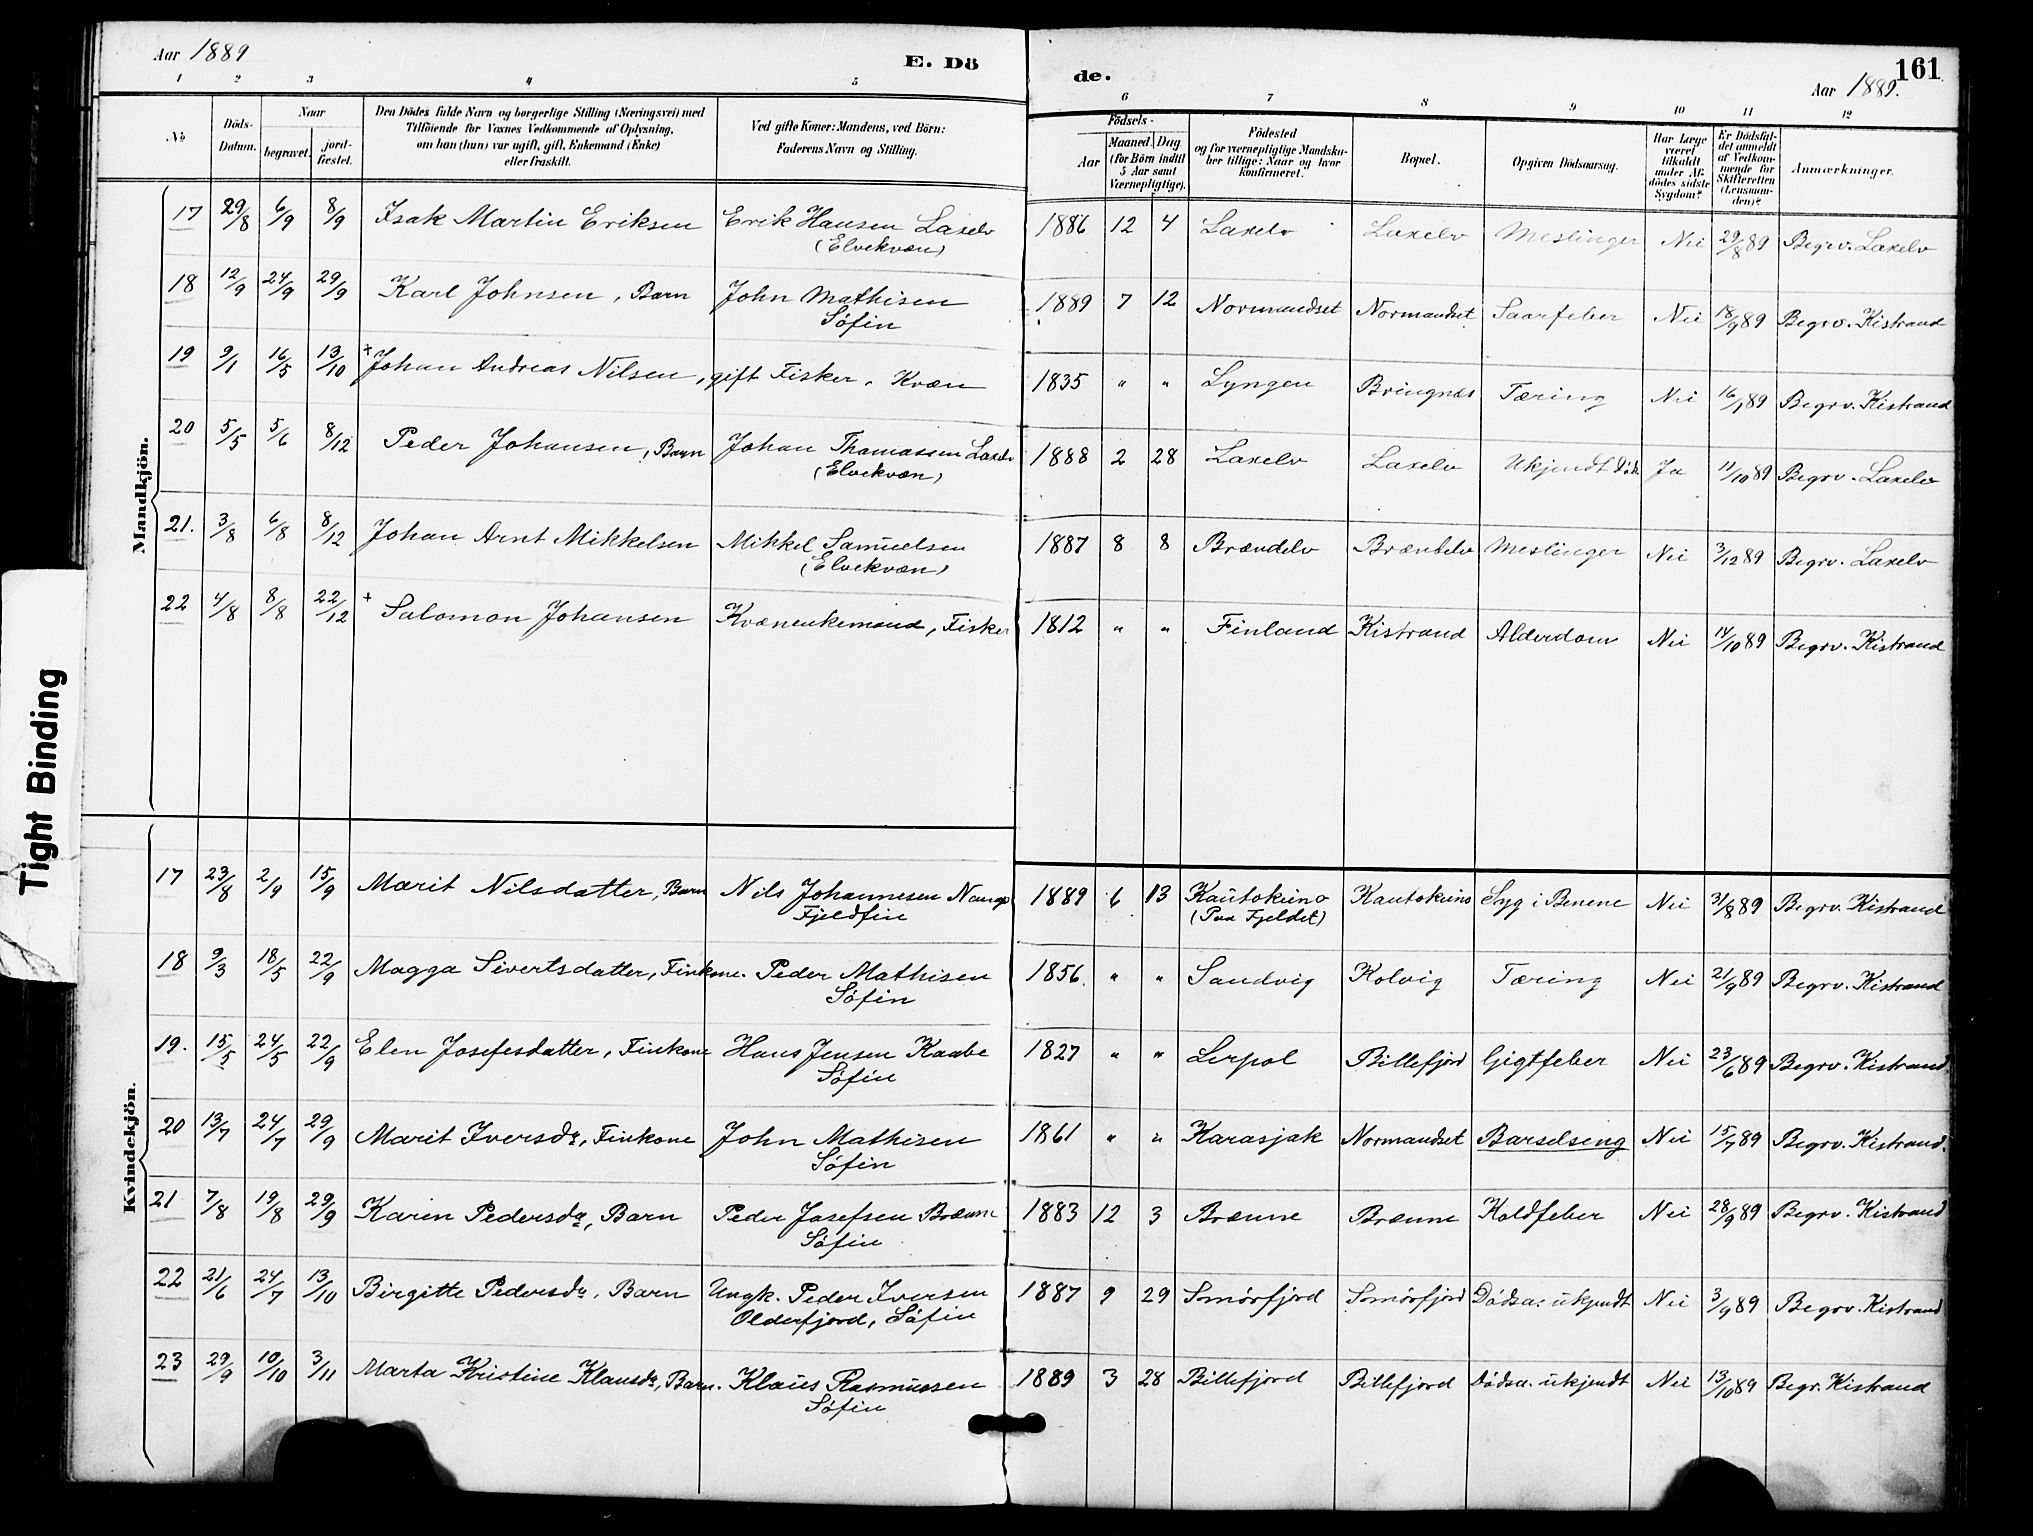 Aar 1889
E. Dö
de.
161
Aar 1889.
1 2 3 4 5 6 7 8 9 10 11 12
No
Döds-Datum.
Naar
begravet.
jord-fæstet.
Den Dödes fulde Navn og borgerlige Stilling (Næringsvei) med
Tilföiende for Voxnes Vedkommende af Oplysning,
om han (hun) var ugift, gift, Enkemand (Enke)
eller fraskilt.
Ved gifte Koner: Mandens, ved Börn:
Faderens Navn og Stilling.
Födsels-
Aar
Maaned. Dag
(for Börn indtil
5 Aar samt
Værnepligtige).
Födested
og for værnepligtige Mandska-
ber tillige: Naar og hvor
konfirmeret.
Bopæl.
Opgiven Dödsaarsag.
Har Læge
været
tilkaldt
under Af-
dödes sidste
Sygdom?
Er Dödsfal-
det anmeldt
af Vedkom-
mende for
Skifteretten
(Lensman-
den)?
Anmærkninger.
Mandkjön.
17 29/8 6/9 8/9 Isak Martin Eriksen Erik Hansen Laxelv 1886 12 4 Laxelv Laxelv Meslinger Nei 29/8 89 Begrv. Laxelv
(Elvekvæn)
18 12/9 24/9 29/9 Karl Johnsen, Barn John Mathisen 1889 7 12 Normandset Normandset Saarfeber Nei 18/9 89 Begrv. Kistrand
Söfin
19 9/1 16/5 13/10 + Johan Andreas Nilsen, gift Fisker, Kvæn 1835 " " Lyngen Bringnæs Tæring Nei 16/1 89 Begrv. Kistrand
20 5/5 5/6 8/12 Peder Johansen, Barn Johan Thomassen Laxelv 1888 2 28 Laxelv Laxelv Ukjendt Döds Ja 11/10 89 Begrv. Laxelv
(Elvekvæn)
21. 3/8 6/8 8/12 Johan Arnt Mikkelsen Mikkel Samuelsen 1887 8 8 Brændelv Brændelv Meslinger Nei 3/12 89 Begrv. Laxelv
(Elvekvæn)
22 4/8 8/8 22/12 + Salomon Johansen Kvænenkemand, Fisker 1812 " " Finland Kistrand Alderdom Nei 14/10 89 Begrv. Kistrand
Tight Binding
Kvindekjön.
17 23/8 2/9 15/9 Marit Nilsdatter, Barn Nils Johannesen Nango 1889 6 13 Kautokeino Kautokeino Syg i Benene Nei 31/8 89 Begrv. Kistrand
Fjeldfin (Paa Fjeldet)
18 9/3 18/5 22/9 Magga Sivertsdatter, Finkone. Peder Mathisen 1856. " " Sandvig Kolvig Tæring Nei 21/9 89 Begrv. Kistrand
Söfin
19. 15/5 24/5 22/9 Elen Josefesdatter, Finkone Hans Jensen Kaabe 1827 " " Lerpol Billefjord Gigtfeber Nei 23/6 89 Begrv. Kistrand.
Söfin
20 13/7 24/7 29/9 Marit Iversdr, Finkone John Mathisen 1861 " " Karasjok Normandset Barselseng Nei 15/7 89 Begrv. Kistrand.
Söfin
21 7/8 19/8 29/9 Karen Pedersdr, Barn Peder Josefsen Brænne 1883 12 3 Brænne Brænne Koldfeber Nei 28/9 89 Begrv. Kistrand
Söfin
22 21/6 24/7 13/10 Birgitte Pedersdr, Barn Ungk. Peder Iversen 1887 9 29 Smörfjord Smörfjord Dödsa. ukjendt Nei 3/9 89 Begrv. Kistrand
Olderfjord, Söfin
23 29/9 10/10 3/11 Marta Kristine Klausdr, Barn. Klaus Rasmussen 1889 3 28 Billefjord Billefjord Dödsa. ukjendt Nei 13/10 89 Begr. Kistrand
Söfin